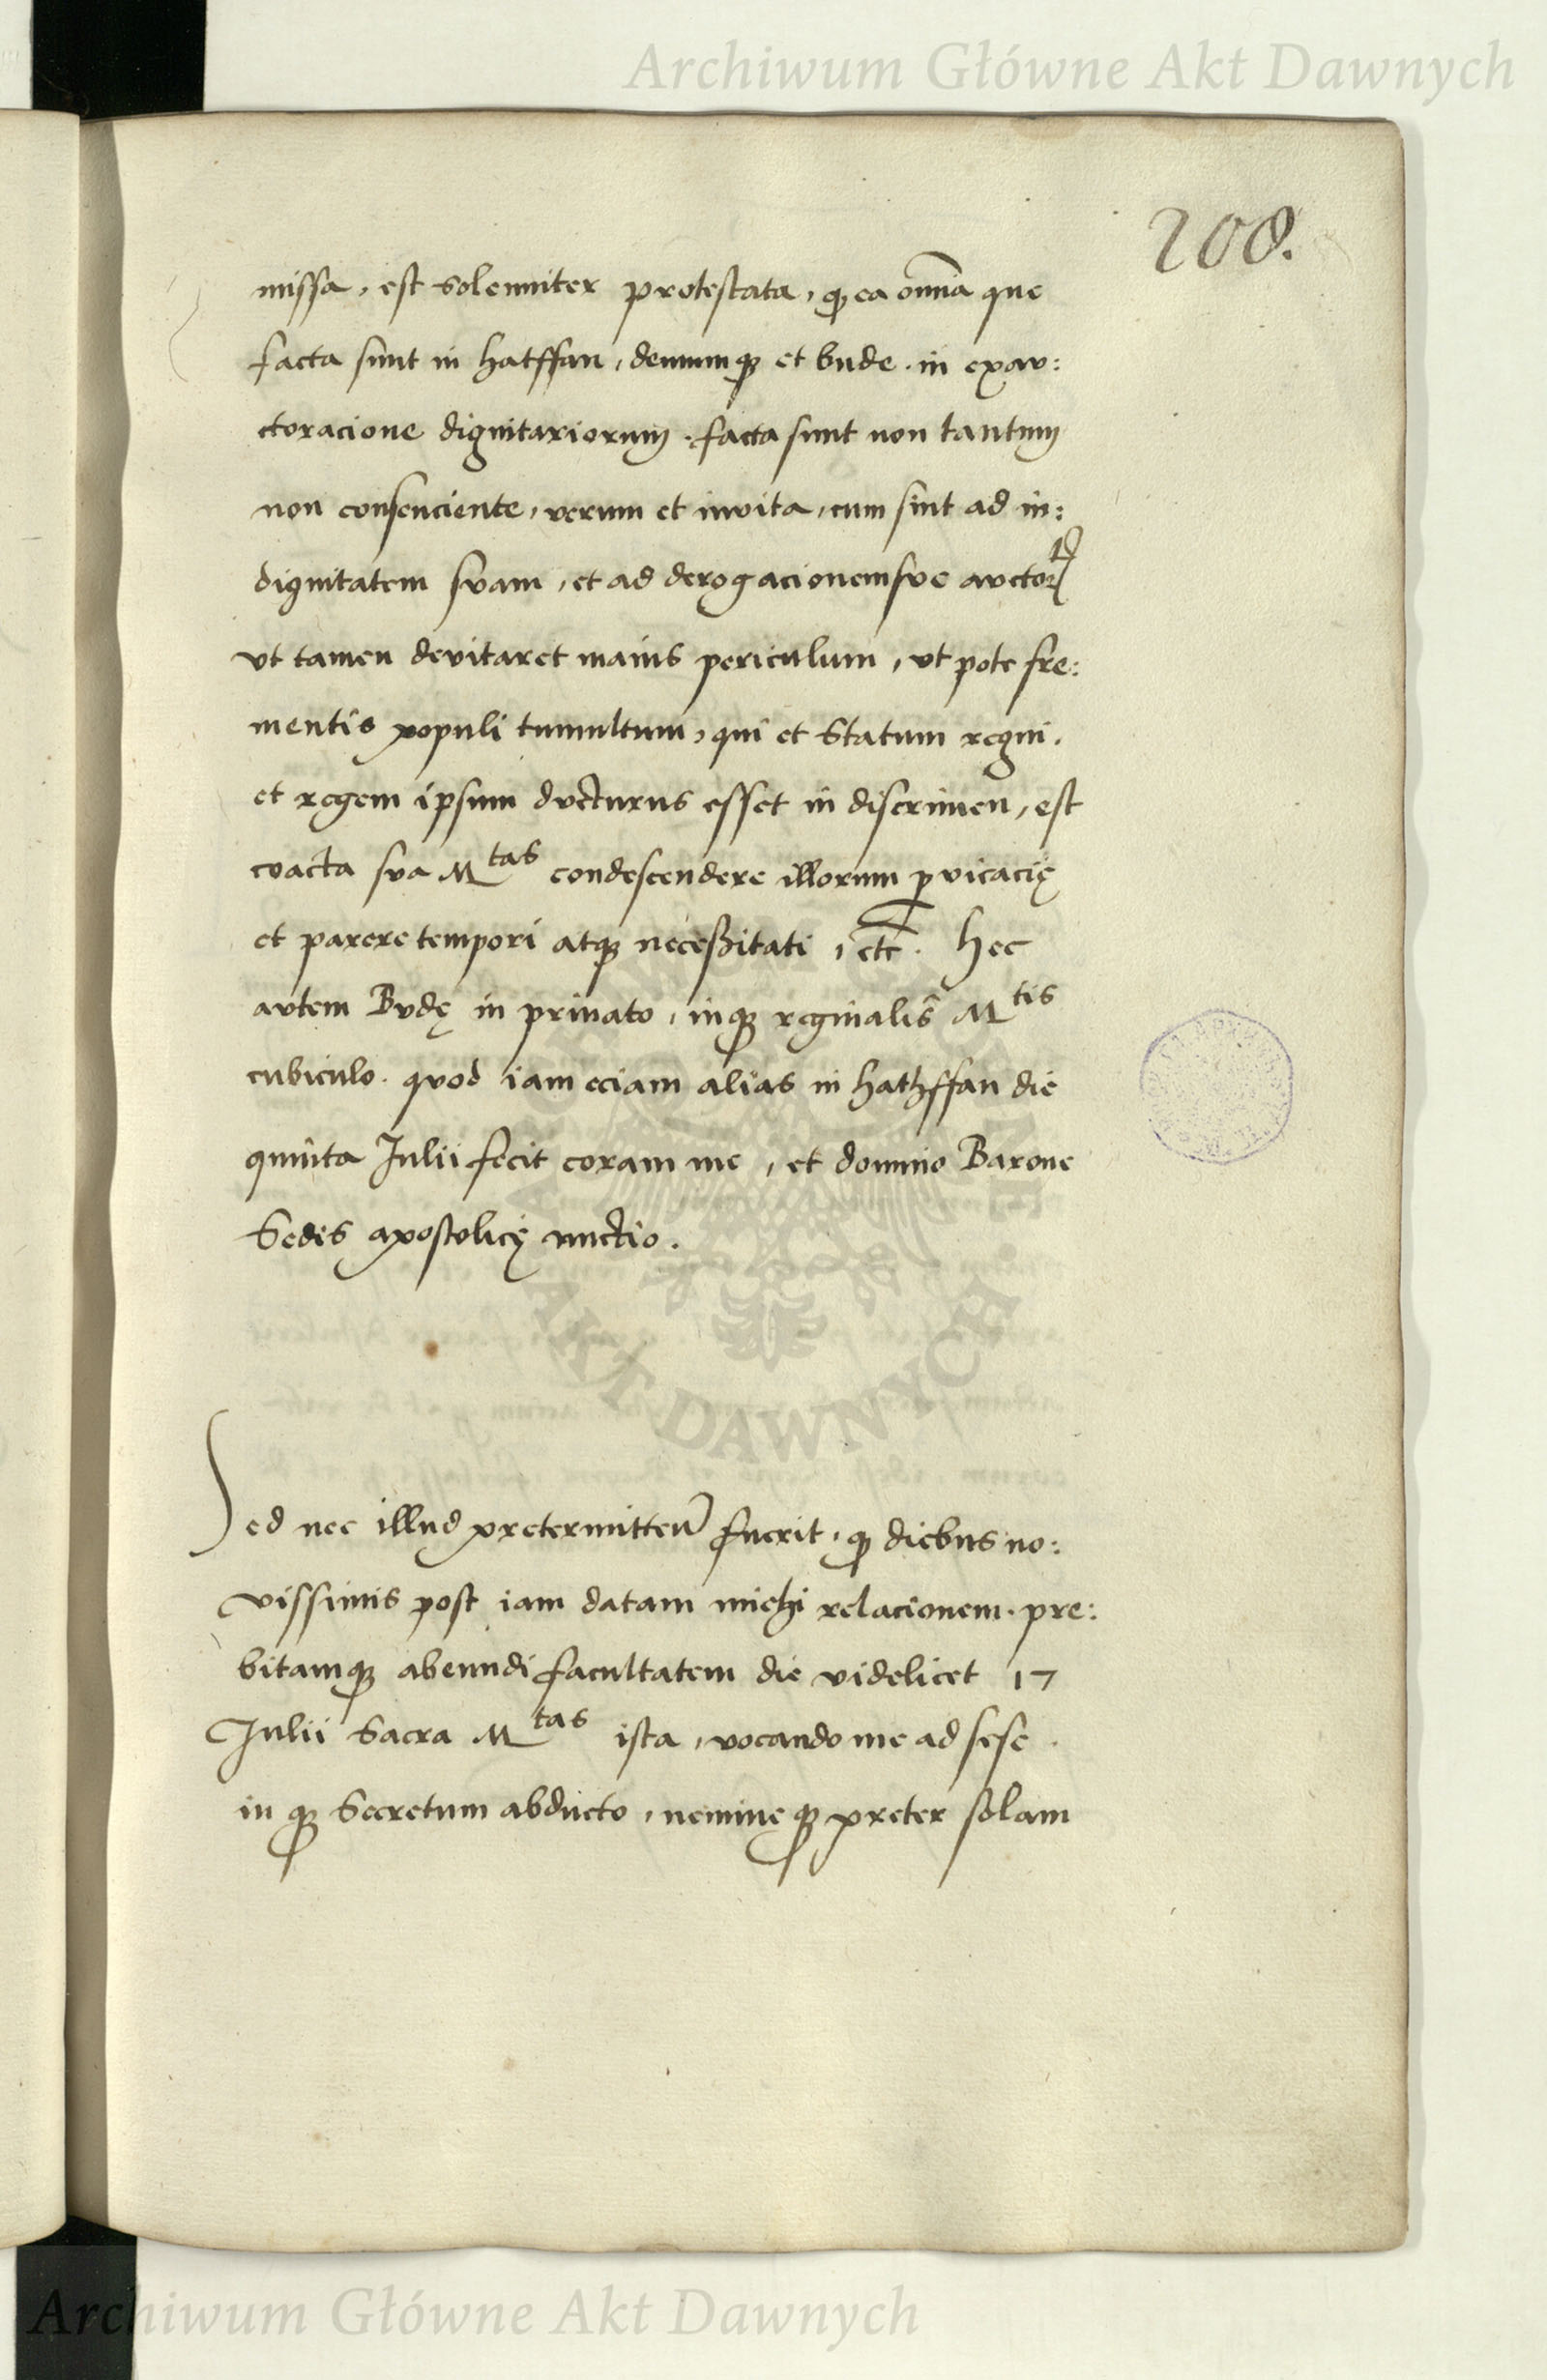 Archiwum Główne Akt Dawnych
208.
missa, est solenniter protestata, qꝫ ea om̃ia que
facta sunt in hatffan, demumqꝫ et bude. in exau:
ctoracione dignitariorum. facta sunt non tantum
non consenciente, verum et invita, cum sint ad in:
dignitatem suam, et ad derogacionem sue auctorᵗⁱˢ
vt tamen devitaret maius periculum, vt pote fre:
mentis populi tumultum, qui et Statum regni.
et regem ipsum ducturus esset in discrimen, est
coacta sua Mᵗᵃˢ condescendere illorum ꝑvicacię
et parere tempori atqꝫ neceßitati, etc̃. Hec
autem Budę in privato, inqꝫ reginalis Mᵗⁱˢ
cubiculo. quod iam eciam alias in hathffan die
quinta Julii fecit coram me, et domino Barone
Sedis apostolicę nuctio.
Sed nec illud pretermitten̄ fuerit, qꝫ diebus no:
vissimis post iam datam michi relacionem. pre:
bitamqꝫ abeundi facultatem die videlicet 17
Julii Sacra Mᵗᵃˢ ista, vocando me ad sese.
in qꝫ Secretum abducto, nemineqꝫ preter solam
AKT DAWNYCH
Archiwum Główne Akt Dawnych